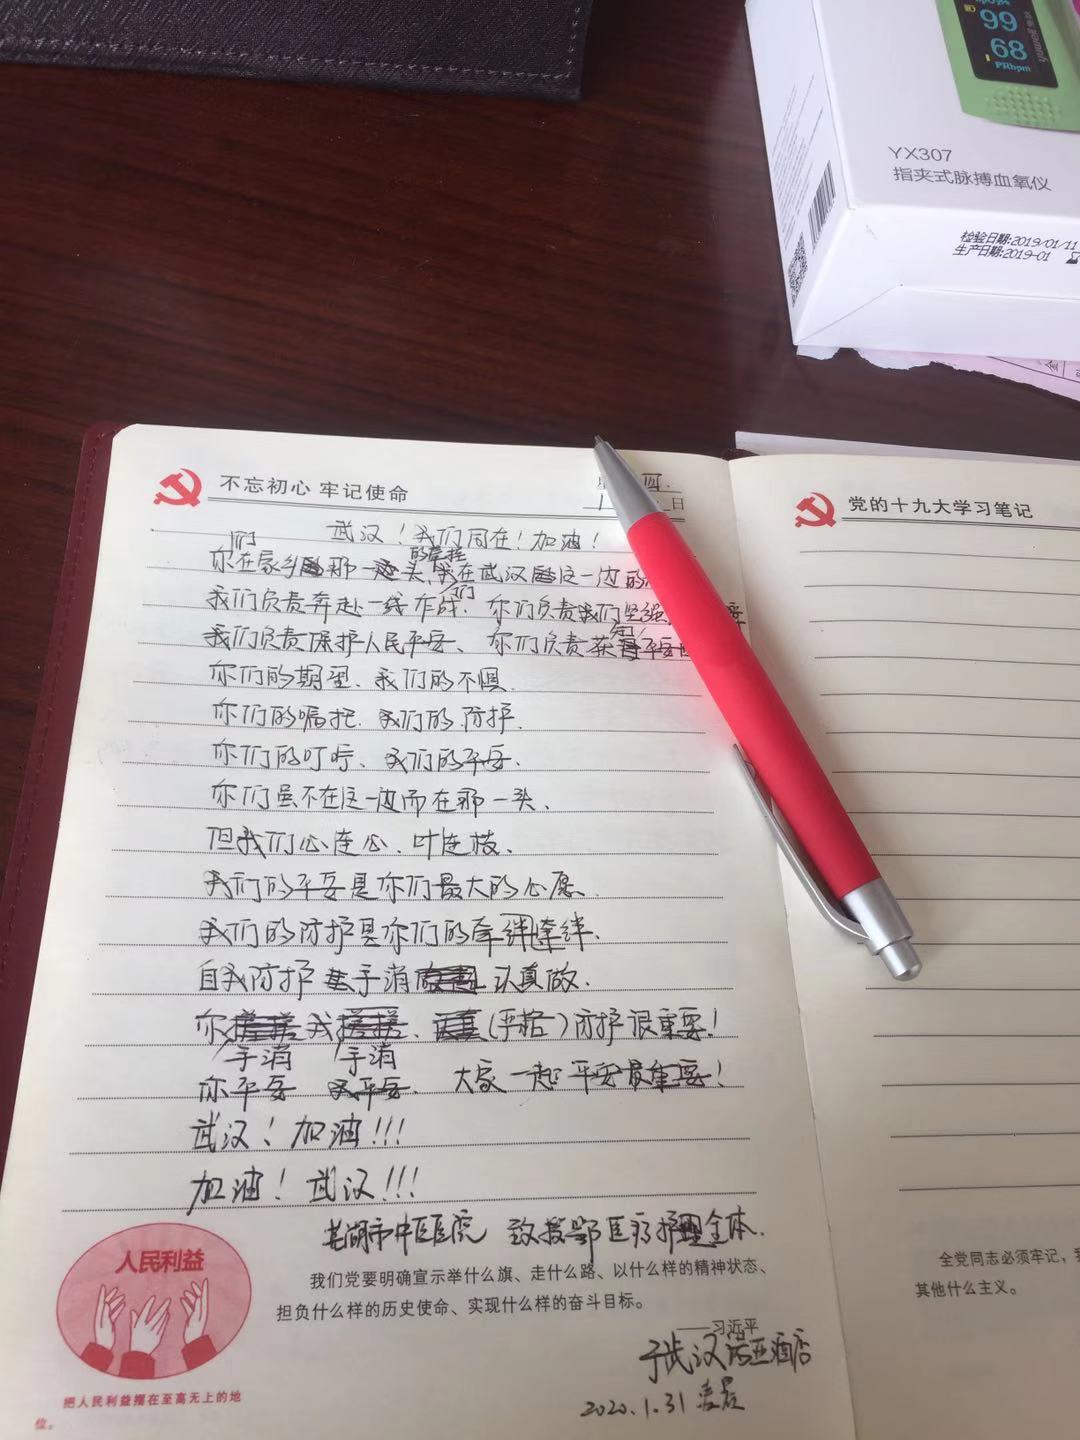 99
68
PRbpm
YX307
指夹式脉搏血氧仪
检验日期:2019/01/11
生产日期:2019-01
不忘初心 牢记使命
日
武汉!我们同在!加油!
你们在家乡那一头的牵挂,我们在武汉这一边的
我们负责奔赴一线作战、你们负责我们坚强
我们负责保护人民平安、你们负责获知平安
你们的期望、我们的不惧.
你们的嘱托、我们的防护.
你们的叮咛、我们的平安.
你们虽不在这一边而在那一头、
但我们心连心、叶连枝、
我们的平安是你们最大的心愿、
我们的防护是你们的牵绊牵绊.
自我防护 手消 认真做.
你手消 我手消、(严格)防护很重要!
你平安 我平安. 大家一起平安最重要!
武汉!加油!!!
加油!武汉!!!
芜湖市中医医院 致援鄂医疗护理全体.
人民利益
我们党要明确宣示举什么旗、走什么路、以什么样的精神状态、
担负什么样的历史使命、实现什么样的奋斗目标。
——习近平
于武汉 酒店
把人民利益摆在至高无上的地
位。
2020.1.31 凌晨
党的十九大学习笔记
全党同志必须牢记，
其他什么主义。